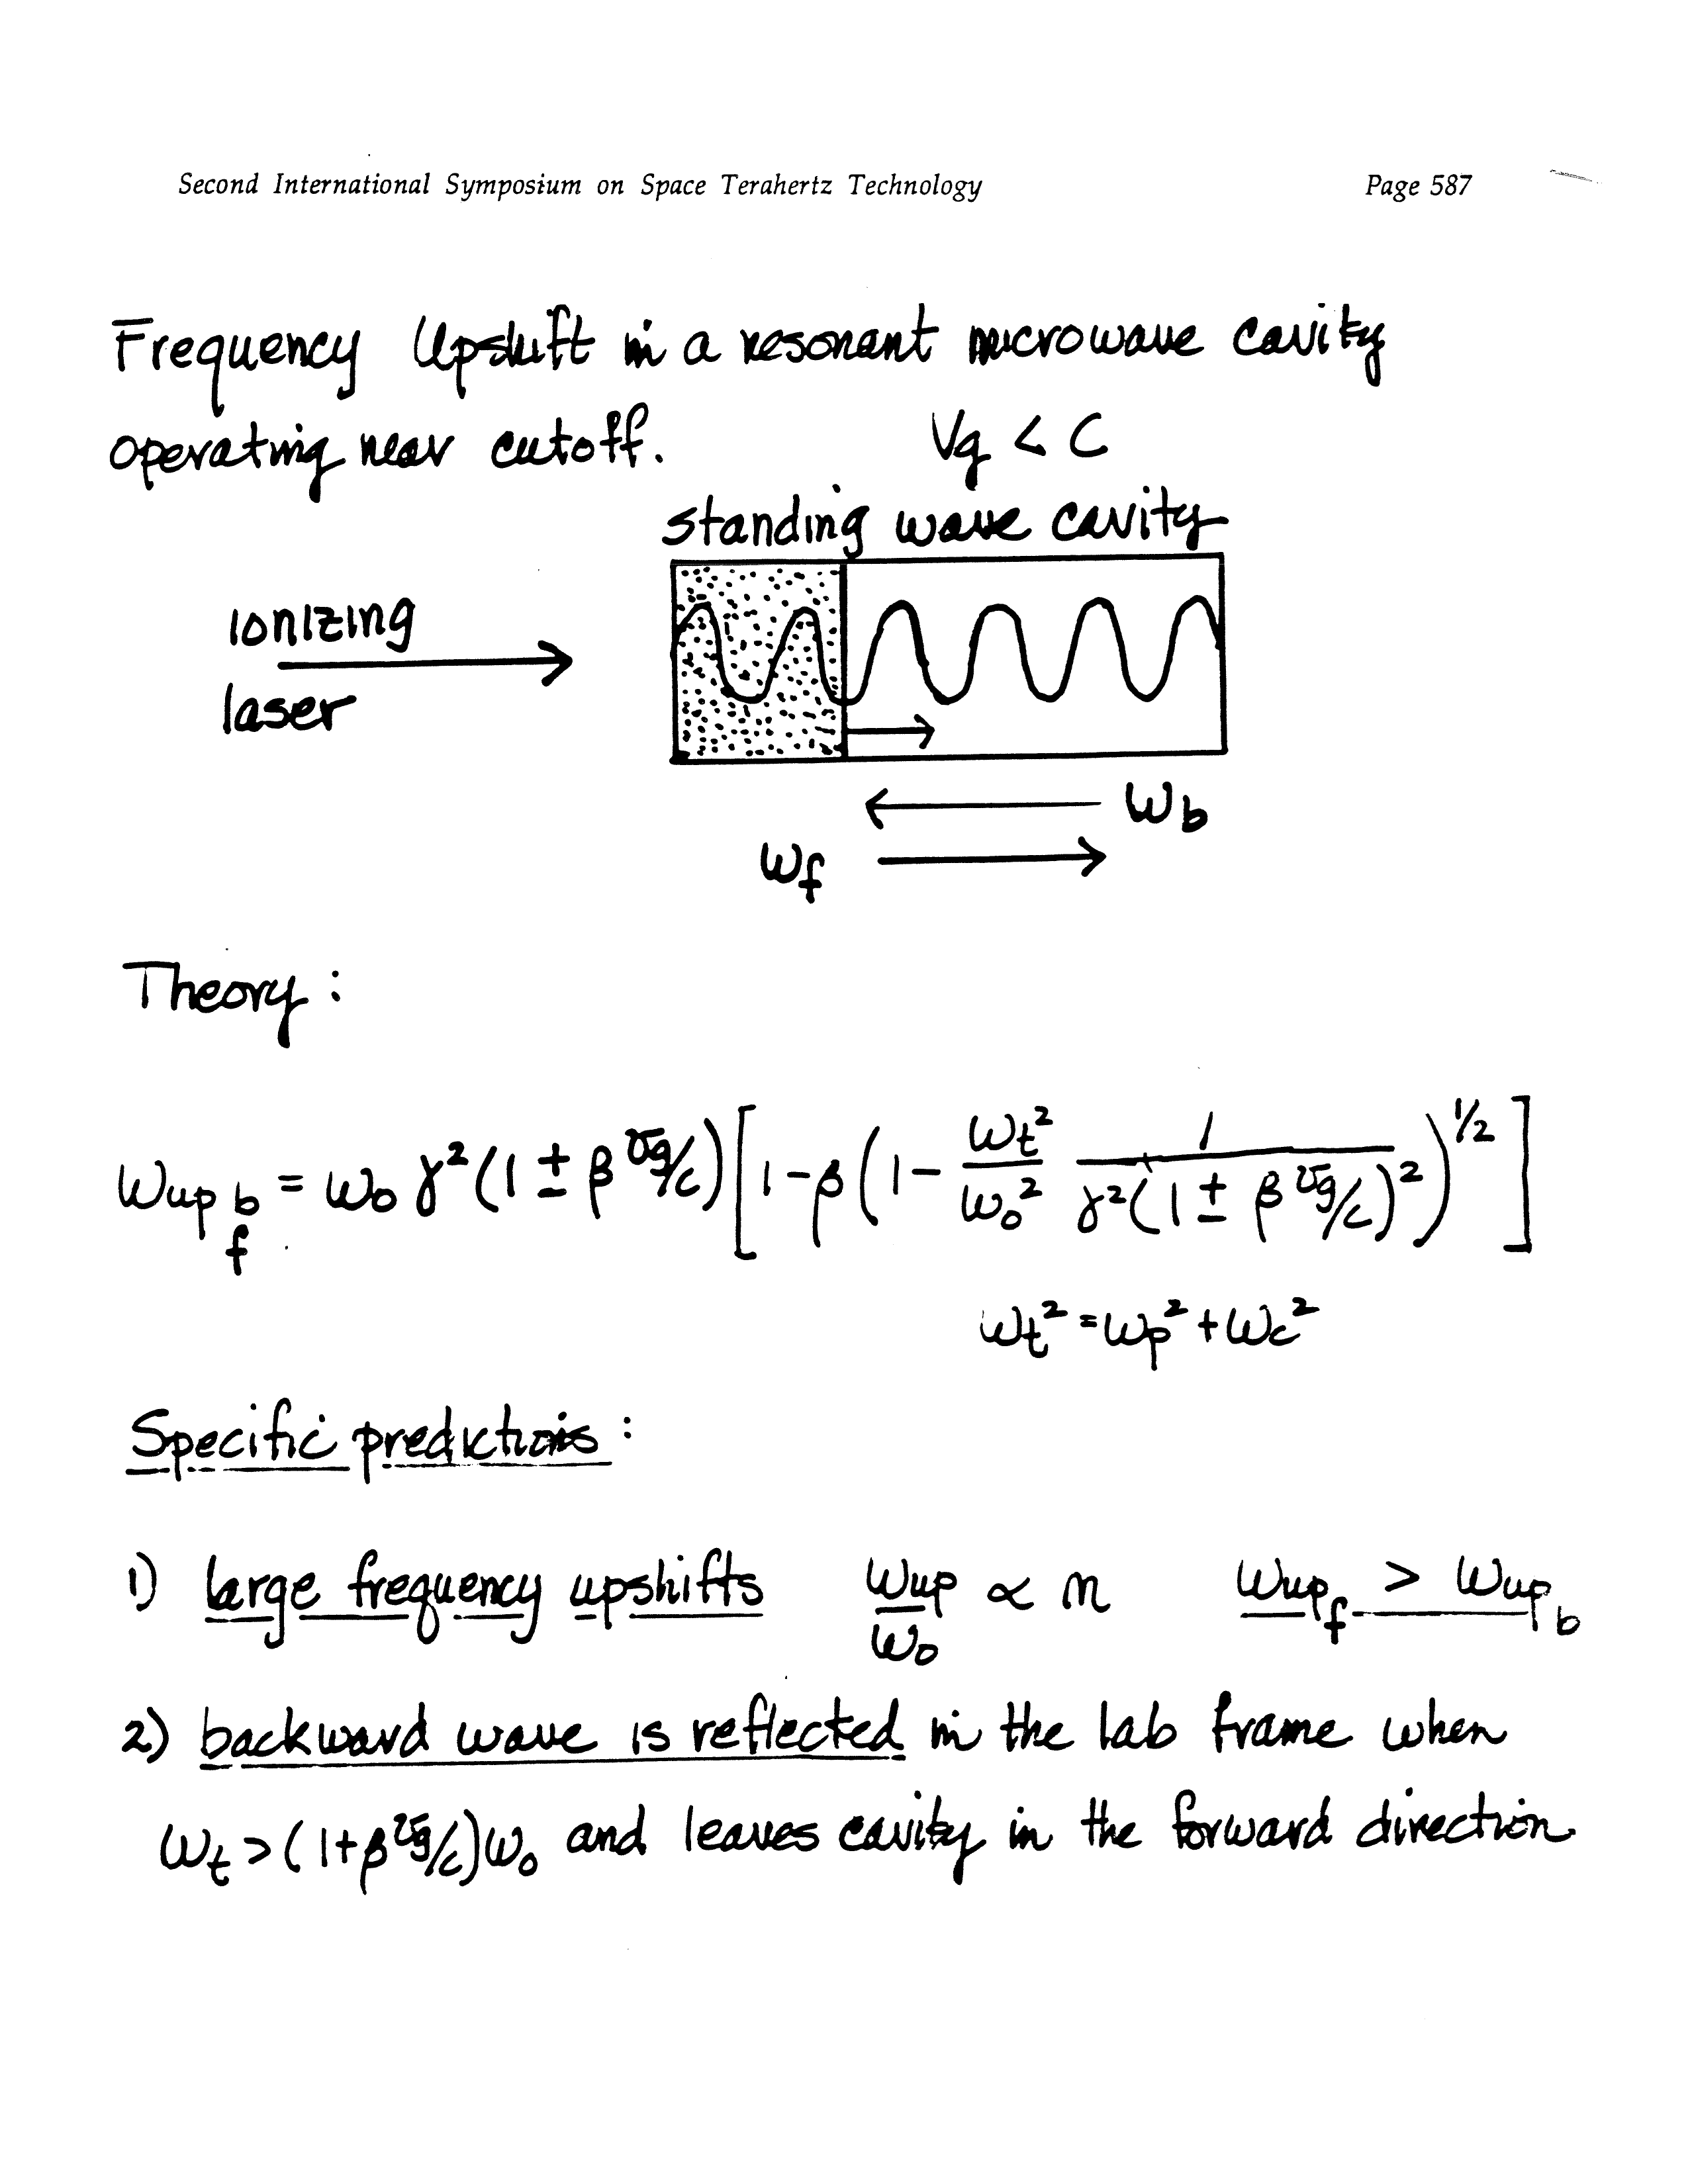 Second International Symposium on Space Terahertz Technology Page 587
Frequency Upshift in a resonant microwave cavity
operating near cutoff. Vg < C
standing wave cavity
ionizing
laser
ωb
ωf
Theory:
ωup b f = ω₀ γ² (1 ± β vg/c) [1 - β (1 - ωt²/ω₀² 1/γ²(1 ± β vg/c)²)^1/2]
ωt² = ωp² + ωc²
Specific predictions:
1) large frequency upshifts ωup/ω₀ ∝ n ωup f > ωup b
2) backward wave is reflected in the lab frame when
ωt > (1+β vg/c) ω₀ and leaves cavity in the forward direction.